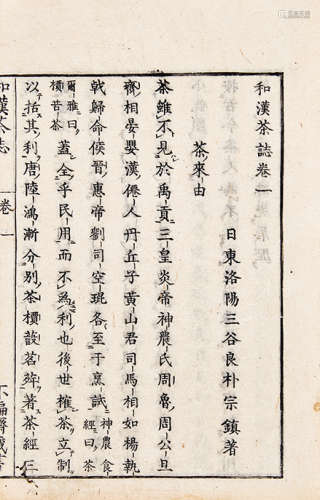 和漢茶誌卷一
日東洛陽三谷良朴宗鎮著
茶來由
茶雖不見於禹貢三皇炎帝神農氏周魯周公旦
齊相晏嬰漢僊人丹丘子黃山君司馬相如楊執
戟歸命侯晉惠帝劉司空琨各至于烹試神農食經曰茶
爾雅曰檟苦茶蓋全乎民用而不為利也後世榷茶立制
以括其利唐陸鴻漸分別茶檟蔎茗荈著茶經三
和漢茶志 卷一